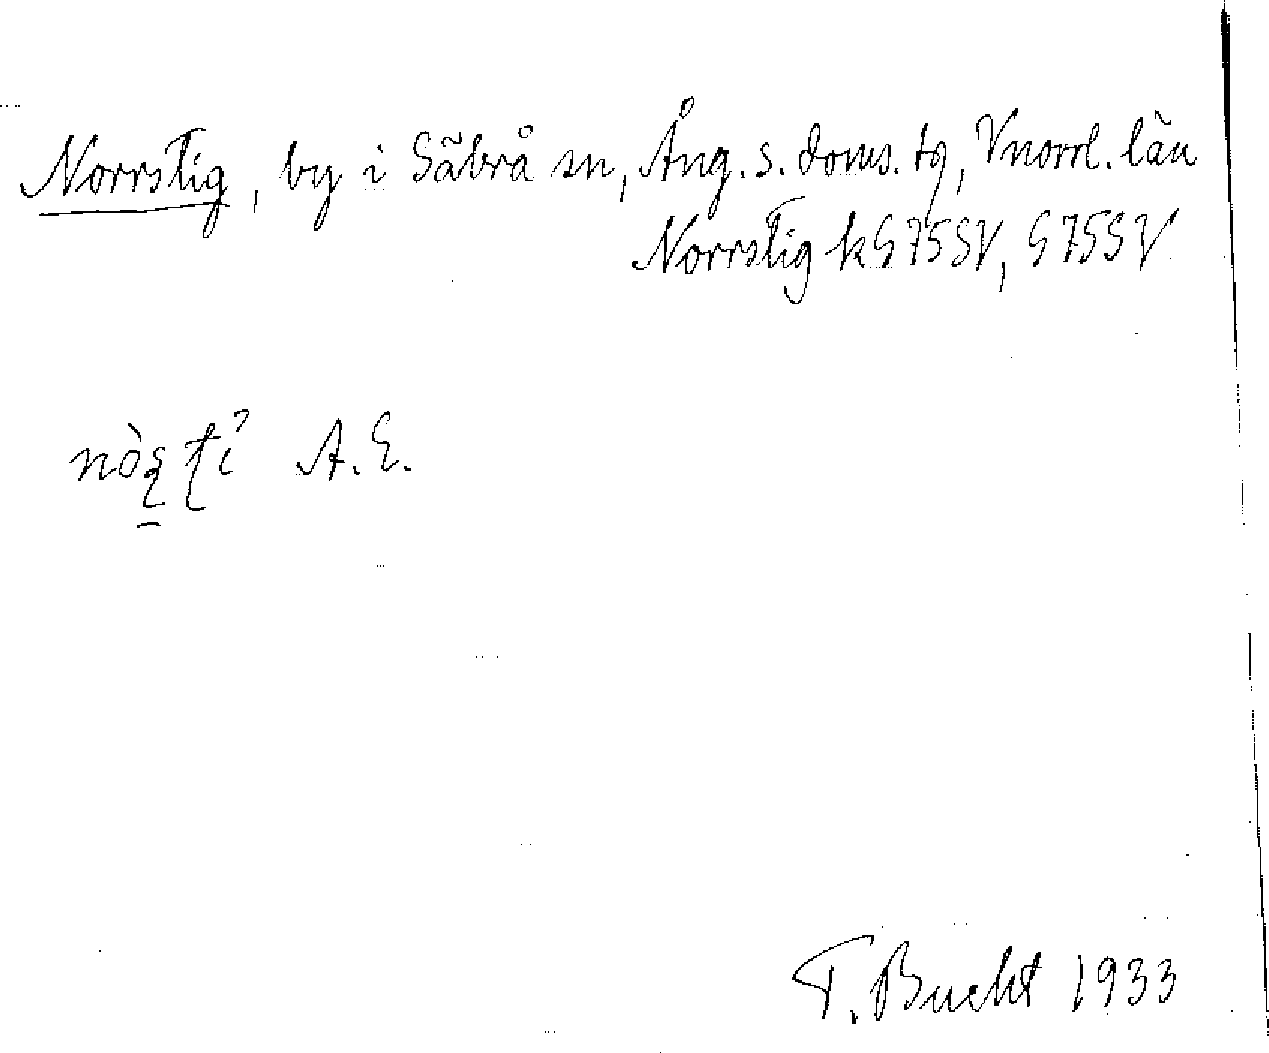 Norrstig, by i Säbrå sn, Ång. s. doms. tg, Vnorrl. län
Norrstig k G75SV, G75SV
A. E.
T. Bucht 1933